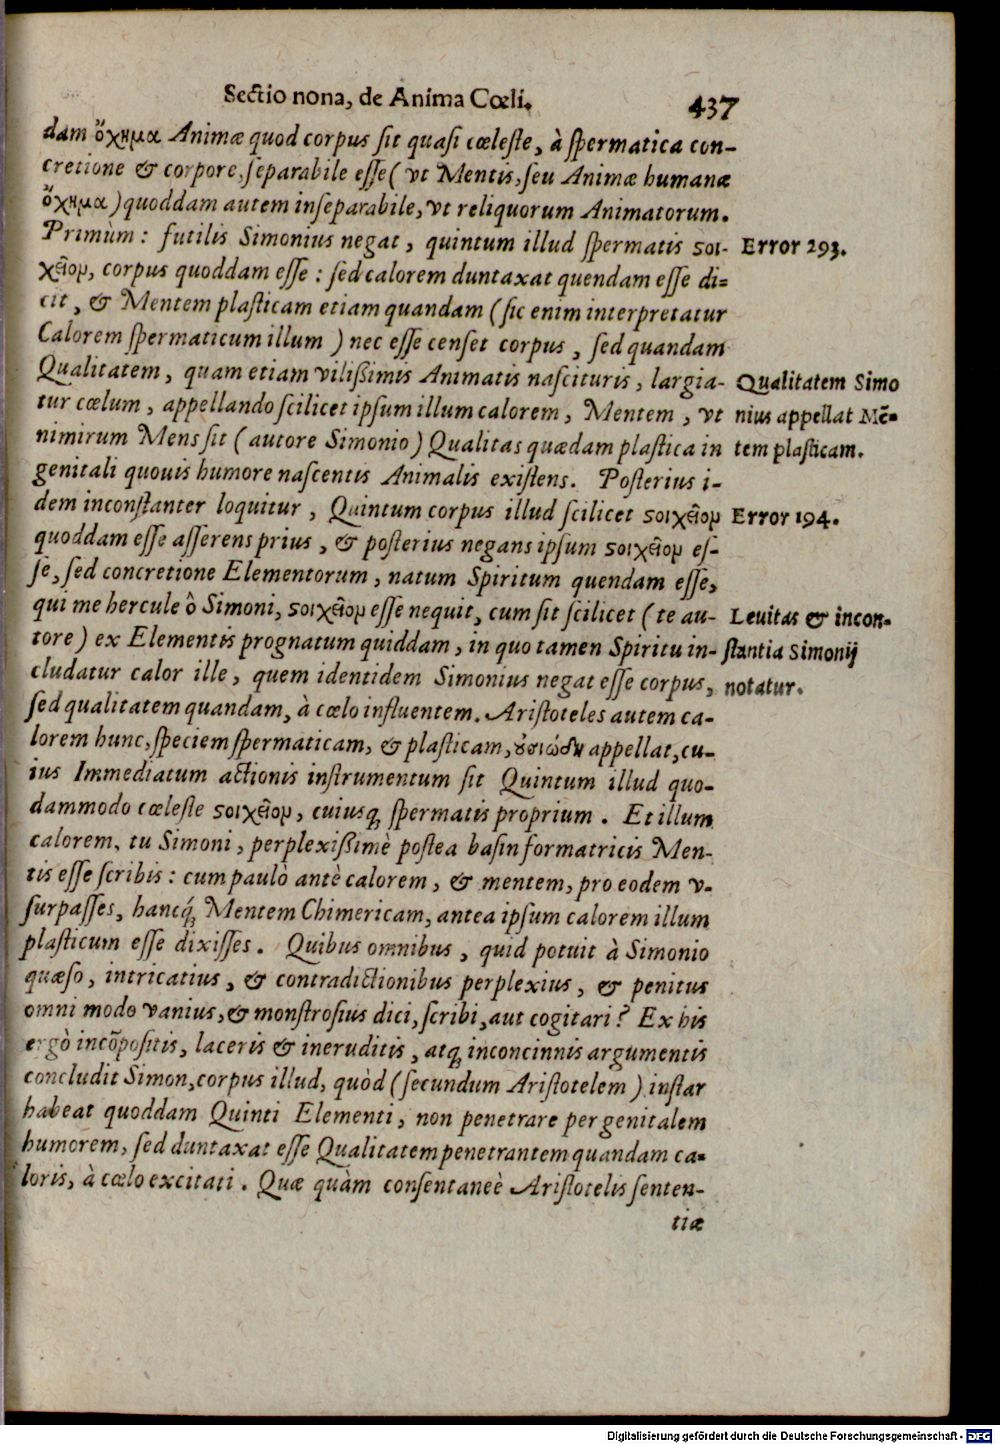 Sectio nona, de Anima Cœli.
437
dam ὄχημα Animæ quod corpus sit quasi cœleste, à spermatica con-
cretione & corpore, separabile esse ( vt Mentis, seu Animæ humanæ
ὄχημα ) quoddam autem inseparabile, vt reliquorum Animatorum.
Primùm : futilis Simonius negat , quintum illud spermatis ϛοι-
Error 293.
χεῖομ, corpus quoddam esse : sed calorem duntaxat quendam esse di=
cit , & Mentem plasticam etiam quandam ( sic enim interpretatur
Calorem spermaticum illum ) nec esse censet corpus , sed quandam
Qualitatem , quam etiam vilißimis Animatis nascituris , largia-
Qualitatem Simo
tur cœlum , appellando scilicet ipsum illum calorem , Mentem , vt
nius appellat Mē=
nimirum Mens sit ( autore Simonio ) Qualitas quædam plastica in
tem plasticam.
genitali quouis humore nascentis Animalis existens. Posterius i-
dem inconstanter loquitur , Quintum corpus illud scilicet ϛοιχεῖομ
Error 194.
quoddam esse asserens prius , & posterius negans ipsum ϛοιχεῖομ es-
se, sed concretione Elementorum , natum Spiritum quendam esse,
qui me hercule ô Simoni, ϛοιχεῖομ esse nequit, cum sit scilicet ( te au-
Leuitas & incon-
tore ) ex Elementis prognatum quiddam , in quo tamen Spiritu in-
stantia Simonij
cludatur calor ille , quem identidem Simonius negat esse corpus,
notatur.
sed qualitatem quandam, à cœlo influentem. Aristoteles autem ca-
lorem hunc, speciem spermaticam, & plasticam, ȣσιώδη appellat, cu-
ius Immediatum actionis instrumentum sit Quintum illud quo-
dammodo cœleste ϛοιχεῖομ, cuiusq; spermatis proprium . Et illum
calorem, tu Simoni , perplexißimè postea basin formatricis Men-
tis esse scribis : cum paulò antè calorem , & mentem, pro eodem v-
surpasses, hancq́; Mentem Chimericam, antea ipsum calorem illum
plasticum esse dixisses . Quibus omnibus , quid potuit à Simonio
quæso, intricatius , & contradictionibus perplexius , & penitus
omni modo vanius, & monstrosius dici, scribi, aut cogitari? Ex his
ergò incōpositis, laceris & ineruditis , atq; inconcinnis argumentis
concludit Simon, corpus illud, quòd ( secundum Aristotelem ) instar
habeat quoddam Quinti Elementi , non penetrare per genitalem
humorem, sed duntaxat esse Qualitatem penetrantem quandam ca-
loris, à cœlo excitati . Quæ quàm consentaneè Aristotelis senten-
tiæ
Digitalisierung gefördert durch die Deutsche Forschungsgemeinschaft - DFG